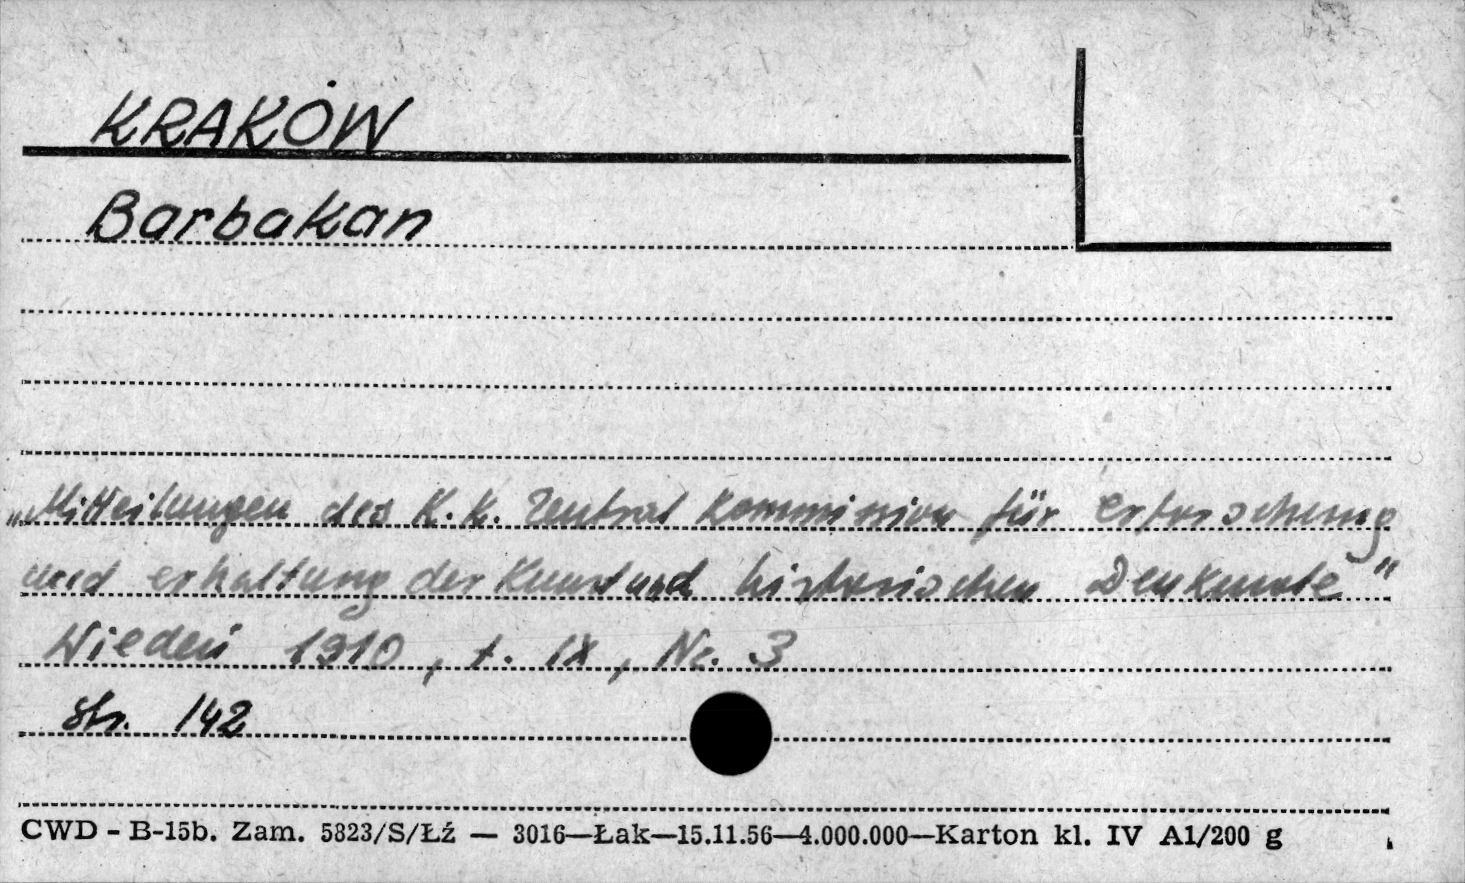 KRAKÓW
Barbakan
„Mitteilungen des K.K. Zentral Kommission für Erforschung
und erhaltung der Kunst und historischen Denkmale"
Wiedeń 1910, t. IX, Nr. 3
str. 142
CWD - B-15b. Zam. 5823/S/Łź — 3016—Łak—15.11.56—4.000.000—Karton kl. IV A1/200 g